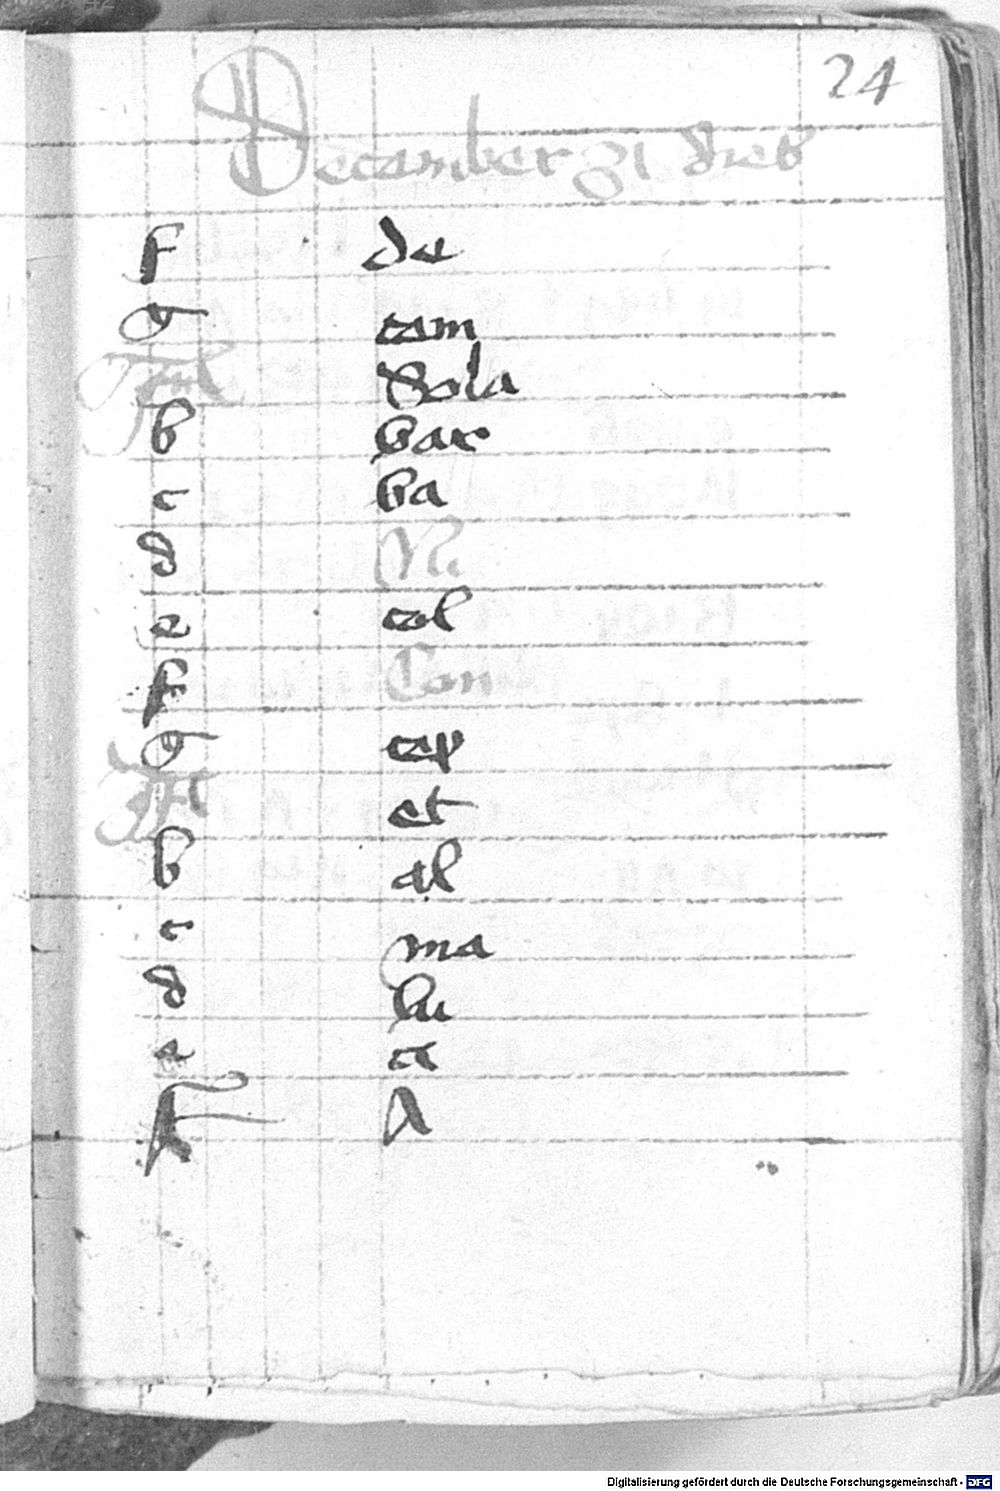 24
December 31 dies
f de
g cem
A Sola
b bar
c ba
d Ni
e col
f Con
g cep
A et
b al
c ma
d lu
e ci
f A
Digitalisierung gefördert durch die Deutsche Forschungsgemeinschaft - DFG